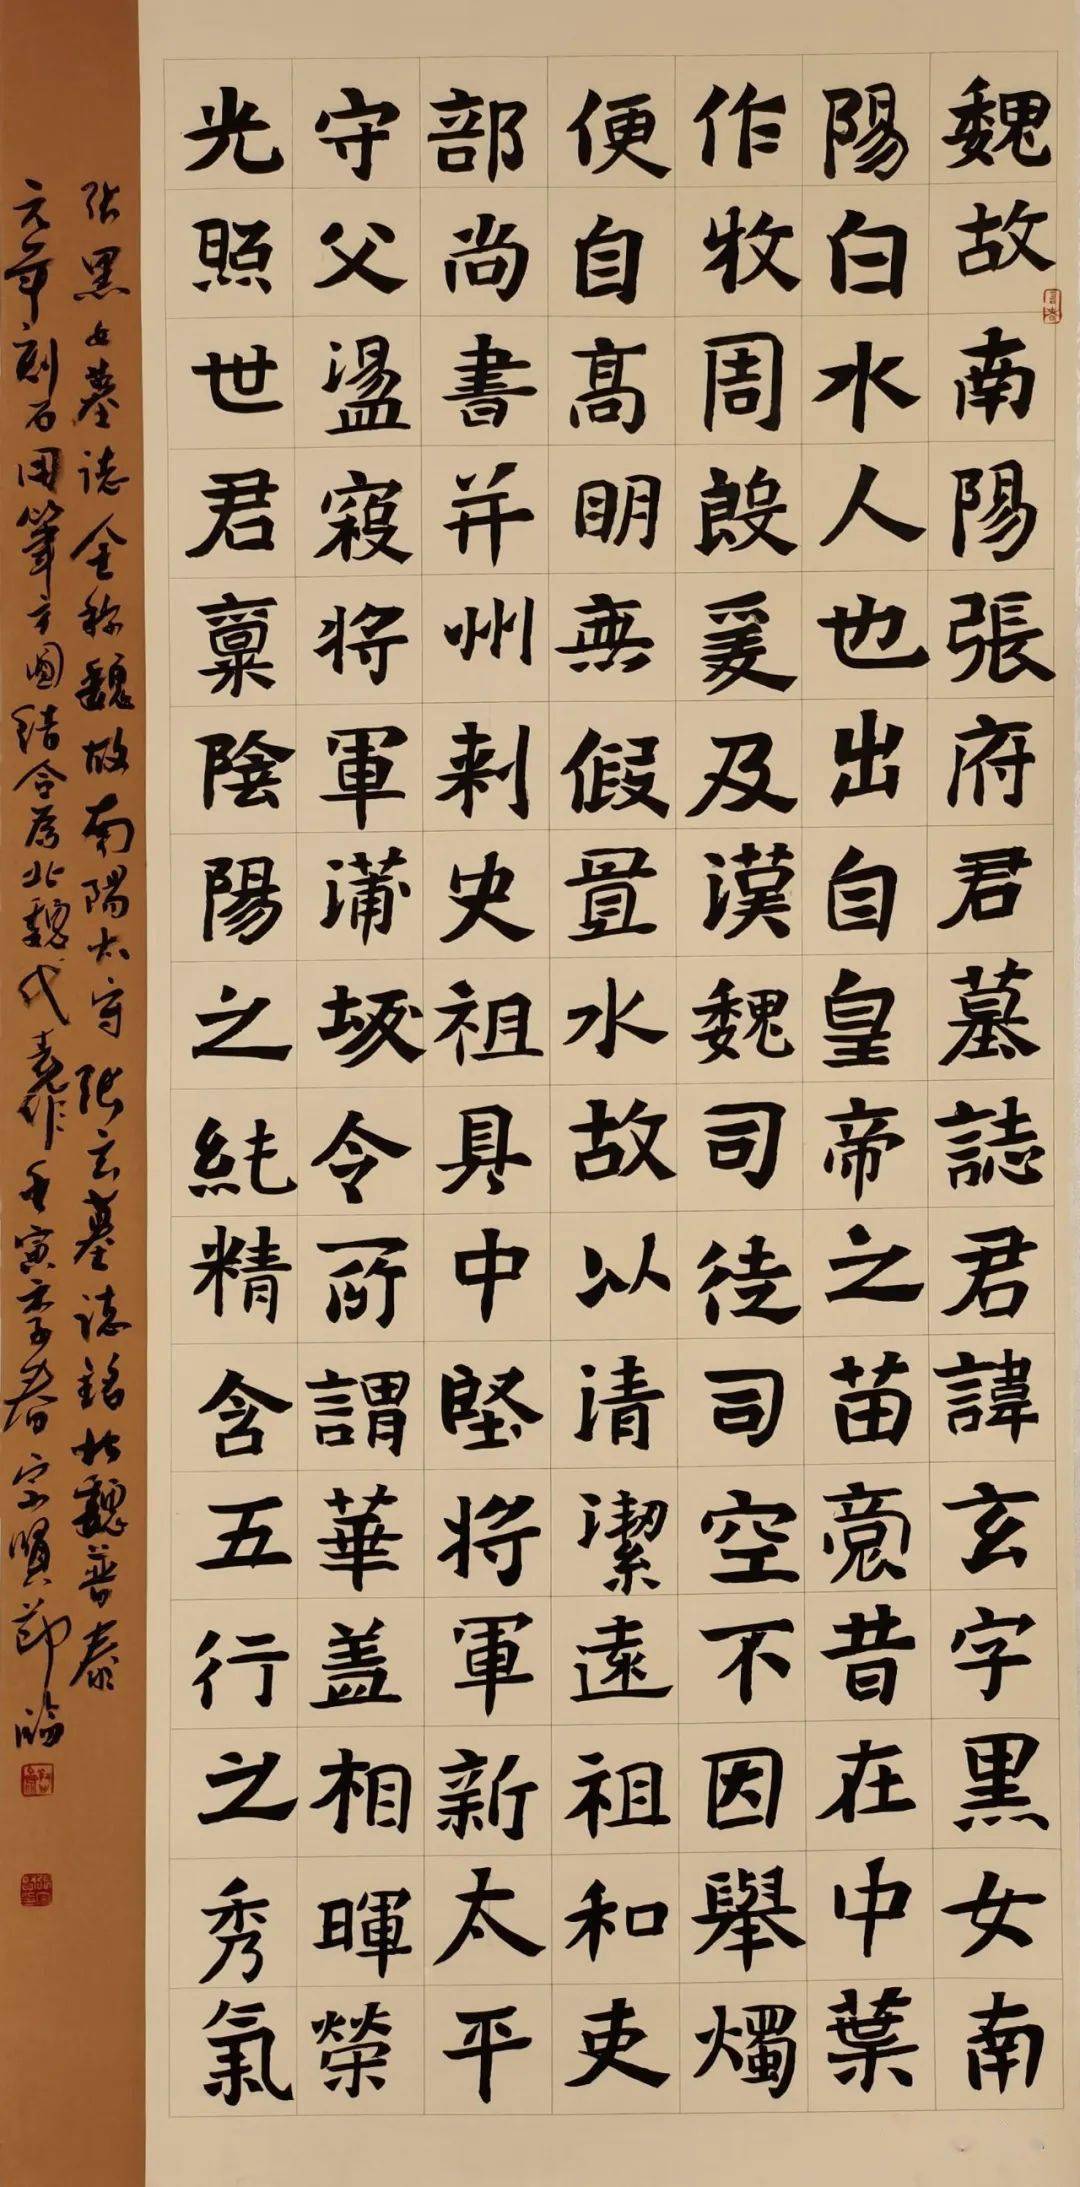 魏故南陽張府君墓誌君諱玄字黑女南
陽白水人也出自皇帝之苗裔昔在中葉
作牧周殷爰及漢魏司徒司空不因舉燭
便自高明無假置水故以清潔遠祖和吏
部尚書并州刺史祖具中堅將軍新太平
守父盪寇將軍蒲坂令所謂華盖相暉榮
光照世君稟陰陽之純精含五行之秀氣
張黑女墓誌全称魏故南陽太守張玄墓誌銘北魏普泰
元年刻石用筆方圓結合為北魏代表作壬寅季春宗賢節臨